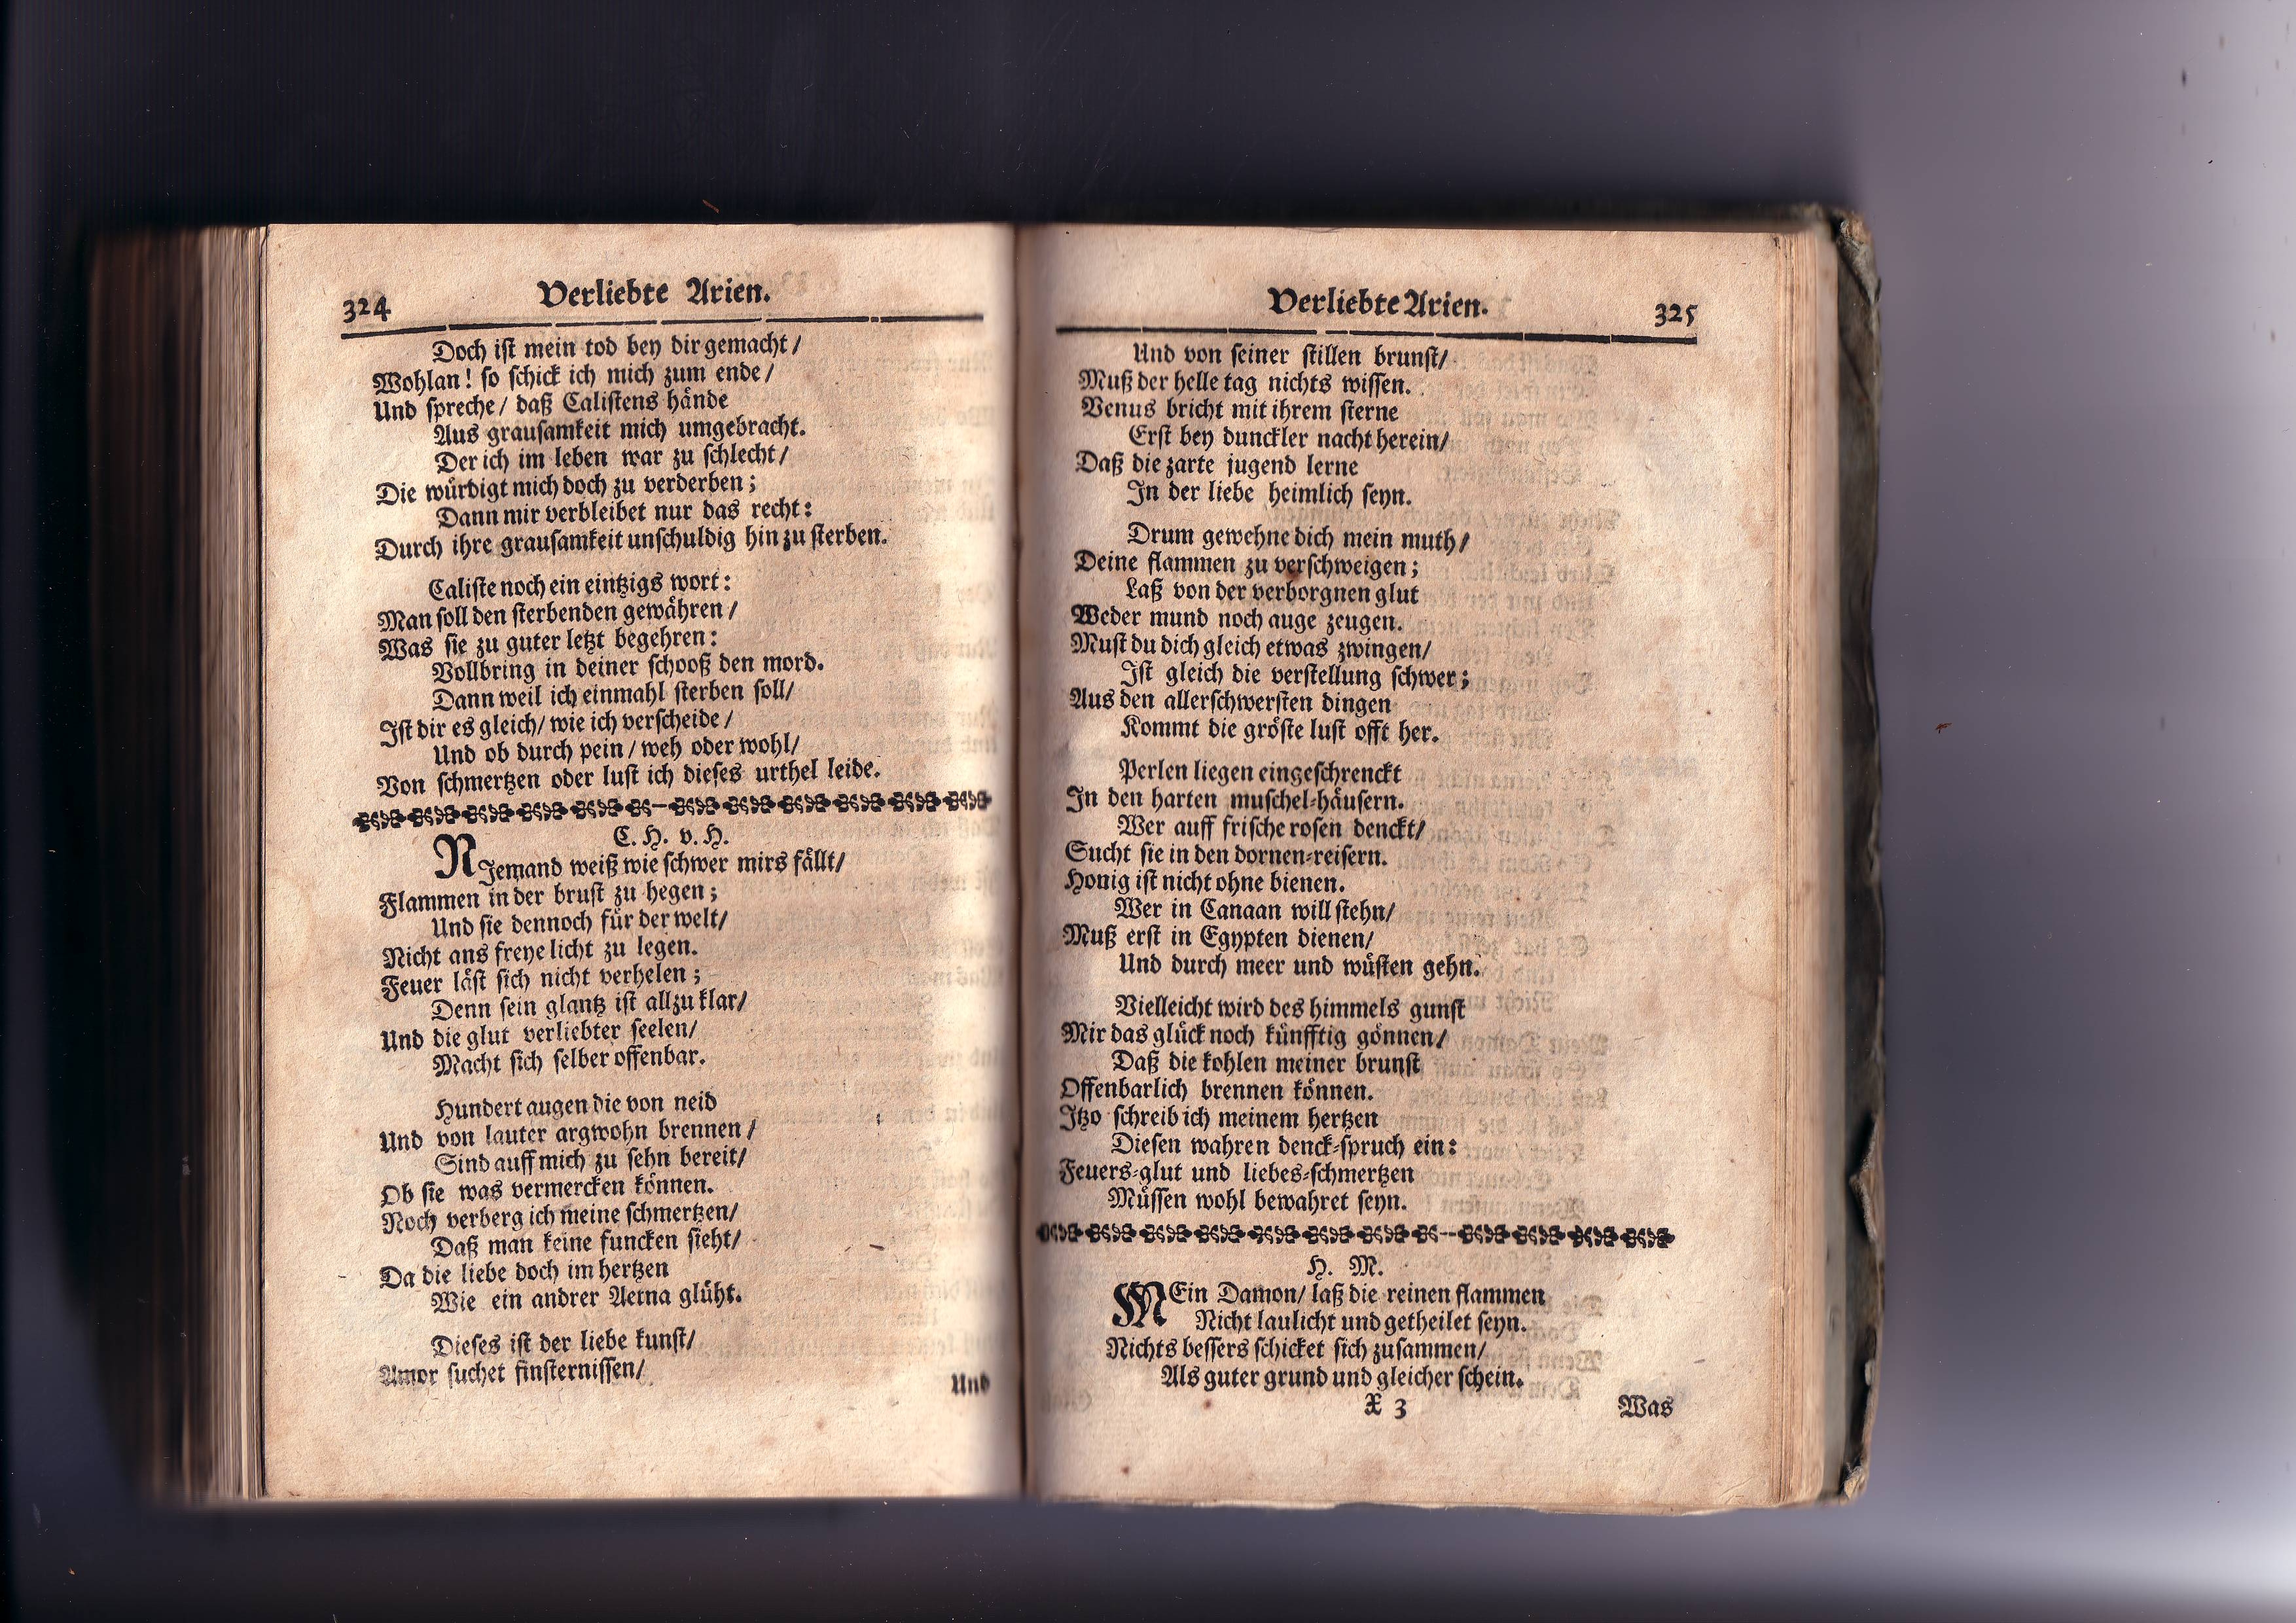 324 Verliebte Arien.
Doch ist mein tod bey dir gemacht/
Wohlan! so schick ich mich zum ende/
Und spreche/ daß Calistens hände
Aus grausamkeit mich umgebracht.
Der ich im leben war zu schlecht/
Die würdigt mich doch zu verderben;
Dann mir verbleibet nur das recht:
Durch ihre grausamkeit unschuldig hin zu sterben.
Caliste noch ein eintzigs wort:
Man soll den sterbenden gewähren/
Was sie zu guter letzt begehren:
Vollbring in deiner schooß den mord.
Dann weil ich einmahl sterben soll/
Ist dir es gleich/ wie ich verscheide/
Und ob durch pein/ weh oder wohl/
Von schmertzen oder lust ich dieses urthel leide.
C. H. v. H.
NJemand weiß wie schwer mirs fällt/
Flammen in der brust zu hegen;
Und sie dennoch für der welt/
Nicht ans freye licht zu legen.
Feuer läst sich nicht verhelen;
Denn sein glantz ist allzu klar/
Und die glut verliebter seelen/
Macht sich selber offenbar.
Hundert augen die von neid
Und von lauter argwohn brennen/
Sind auff mich zu sehn bereit/
Ob sie was vermercken können.
Noch verberg ich meine schmertzen/
Daß man keine funcken sieht/
Da die liebe doch im hertzen
Wie ein andrer Aetna glüht.
Dieses ist der liebe kunst/
Amor suchet finsternissen/
Und
Verliebte Arien. 325
Und von seiner stillen brunst/
Muß der helle tag nichts wissen.
Venus bricht mit ihrem sterne
Erst bey dunckler nacht herein/
Daß die zarte jugend lerne
In der liebe heimlich seyn.
Drum gewehne dich mein muth/
Deine flammen zu verschweigen;
Laß von der verborgnen glut
Weder mund noch auge zeugen.
Must du dich gleich etwas zwingen/
Ist gleich die verstellung schwer;
Aus den allerschwersten dingen
Kommt die gröste lust offt her.
Perlen liegen eingeschrenckt
In den harten muschel-häusern.
Wer auff frische rosen denckt/
Sucht sie in den dornen-reisern.
Honig ist nicht ohne bienen.
Wer in Canaan will stehn/
Muß erst in Egypten dienen/
Und durch meer und wüsten gehn.
Vielleicht wird des himmels gunst
Mir das glück noch künfftig gönnen/
Daß die kohlen meiner brunst
Offenbarlich brennen können.
Itzo schreib ich meinem hertzen
Diesen wahren denck-spruch ein:
Feuers-glut und liebes-schmertzen
Müssen wohl bewahret seyn.
H. M.
MEin Damon/ laß die reinen flammen
Nicht laulicht und getheilet seyn.
Nichts bessers schicket sich zusammen/
Als guter grund und gleicher schein.
X 3 Was